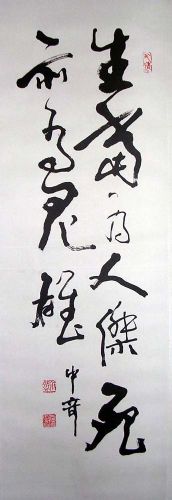 生當為人傑死
亦為鬼雄
中